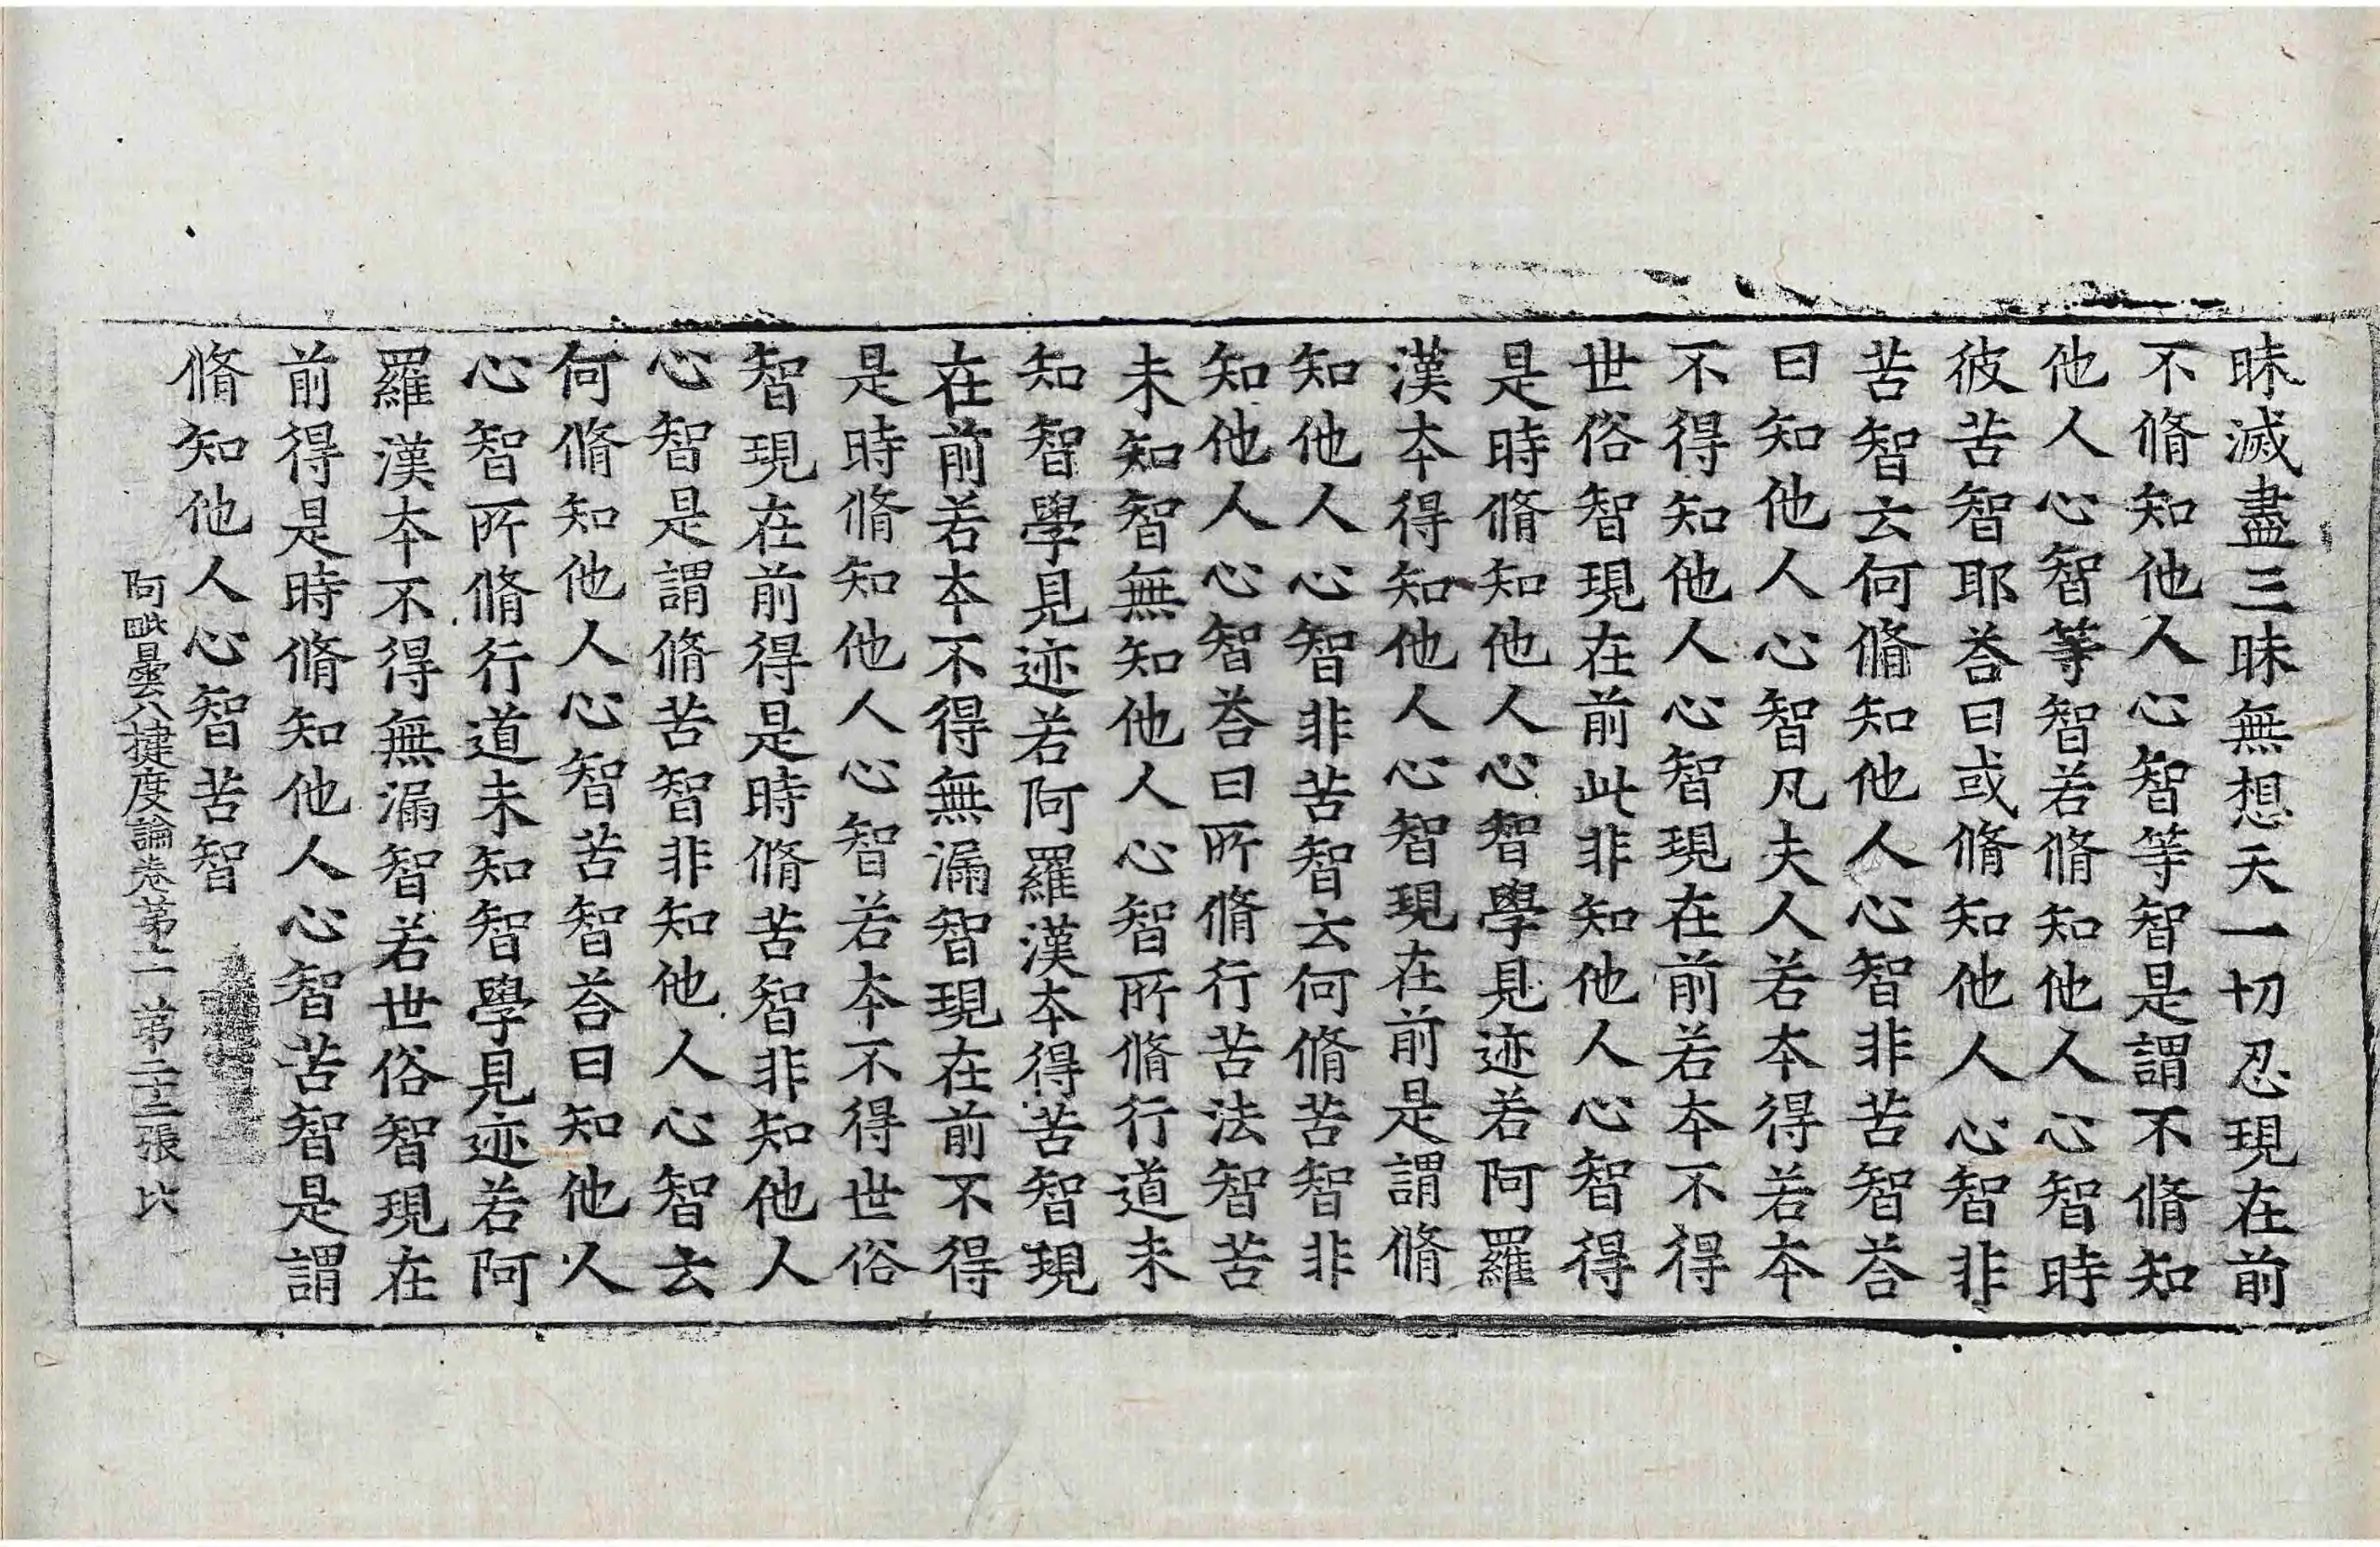 昧滅盡三昧無想天一切忍現在前
不脩知他人心智等智是謂不脩知
他人心智等智若脩知他人心智時
彼苦智耶荅曰或脩知他人心智非
苦智云何脩知他人心智非苦智荅
曰知他人心智凡夫人若夲得若夲
不得知他人心智現在前若夲不得
世俗智現在前此非知他人心智得
是時脩知他人心智學見迹若阿羅
漢夲得知他人心智現在前是謂脩
知他人心智非苦智云何脩苦智非
知他人心智荅曰所脩行苦法智苦
未知智無知他人心智所脩行道未
知智學見迹若阿羅漢夲得苦智現
在前若夲不得無漏智現在前不得
是時脩知他人心智若夲不得世俗
智現在前得是時脩苦智非知他人
心智是謂脩苦智非知他人心智云
何脩知他人心智苦智荅曰知他人
心智所脩行道未知智學見迹若阿
羅漢夲不得無漏智若世俗智現在
前得是時脩知他人心智苦智是謂
脩知他人心智苦智
阿毗曇八揵度論卷第十二 第二十三張